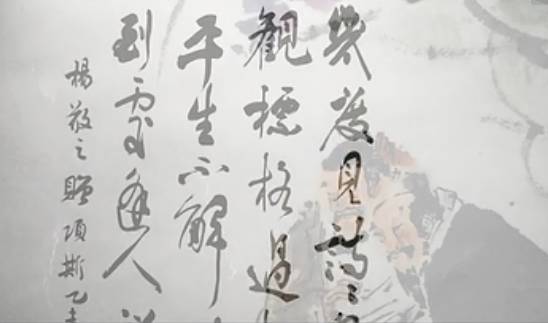 幾度見詩〻
觀標格過
平生不解
到處逢人
楊敬之贈項斯乙